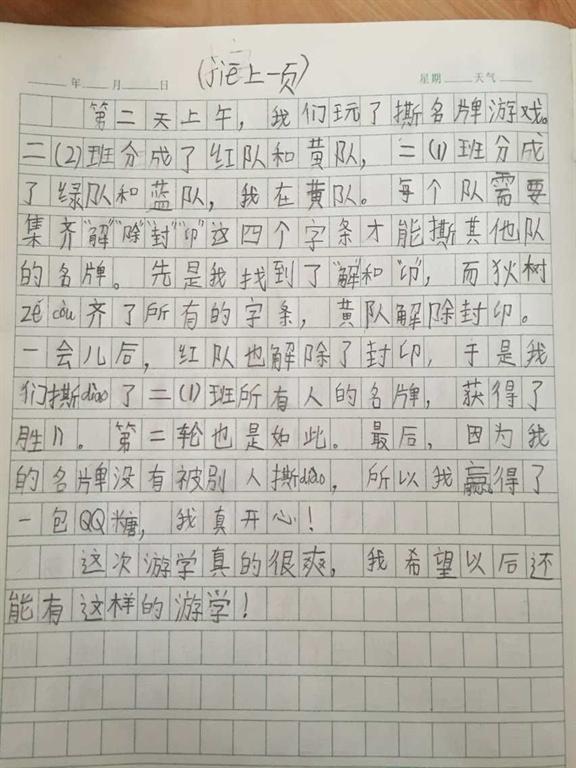 (jiē上一页)
年 月 日 星期 天气
第二天上午，我们玩了撕名牌游戏。
二(2)班分成了红队和黄队，二(1)班分成
了绿队和蓝队，我在黄队。每个队需要
集齐“解”“除”“封”“印”这四个字条才能撕其他队
的名牌。先是我找到了“解”和“印”，而狄树
zé còu齐了所有的字条，黄队解除封印。
一会儿后，红队也解除了封印，于是我
们撕diào了二(1)班所有人的名牌，获得了
胜利。第二轮也是如此。最后，因为我
的名牌没有被别人撕diào，所以我赢得了
一包QQ糖，我真开心！
这次游学真的很爽，我希望以后还
能有这样的游学！